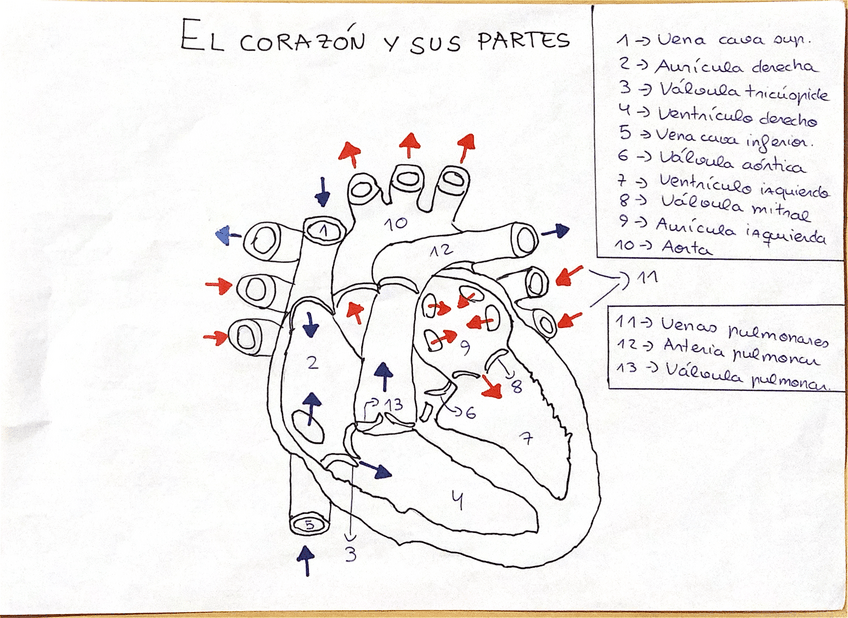 EL CORAZÓN Y SUS PARTES
1 → Vena cava sup.
2 → Aurícula derecha
3 → Válvula tricúspide
4 → Ventrículo derecho
5 → Vena cava inferior.
6 → Válvula aórtica
7 → Ventrículo izquierdo
8 → Válvula mitral
9 → Aurícula izquierda
10 → Aorta
11 → Venas pulmonares
12 → Arteria pulmonar
13 → Válvula pulmonar.
10
1
12
11
2
9
8
13
6
7
4
5
3